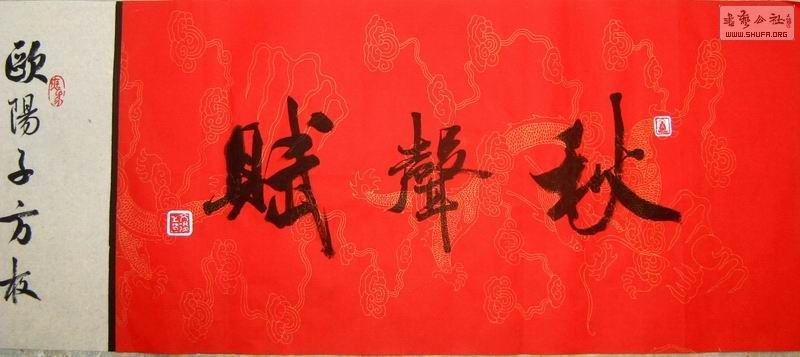 秋聲賦
歐陽子方夜
書藝公社
WWW.SHUFA.ORG